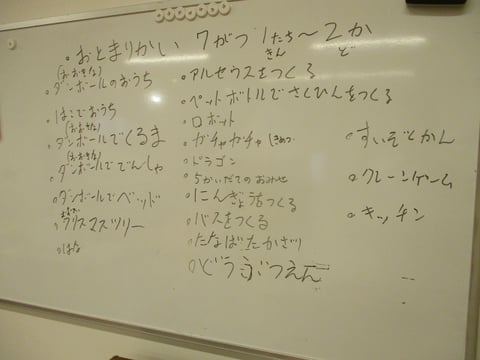 ・おとまりかい 7がつ 1たち～2か
きん ど
(おおきな)
・ダンボールのおうち
・はこでおうち
(おおきな)
・ダンボールでくるま
(おおきな)
・ダンボールででんしゃ
・ダンボールでベッド
・クリスマスツリー
・はな
・アルセウスをつくる
・ペットボトルでさくひんをつくる
・ロボット
・ガチャガチャ
・ドラゴン
・5かいだてのおみせ
・にんぎょうをつくる
・バスをつくる
・たなばたかざり
・どうぶつえん
・すいぞくかん
・クレーンゲーム
・キッチン